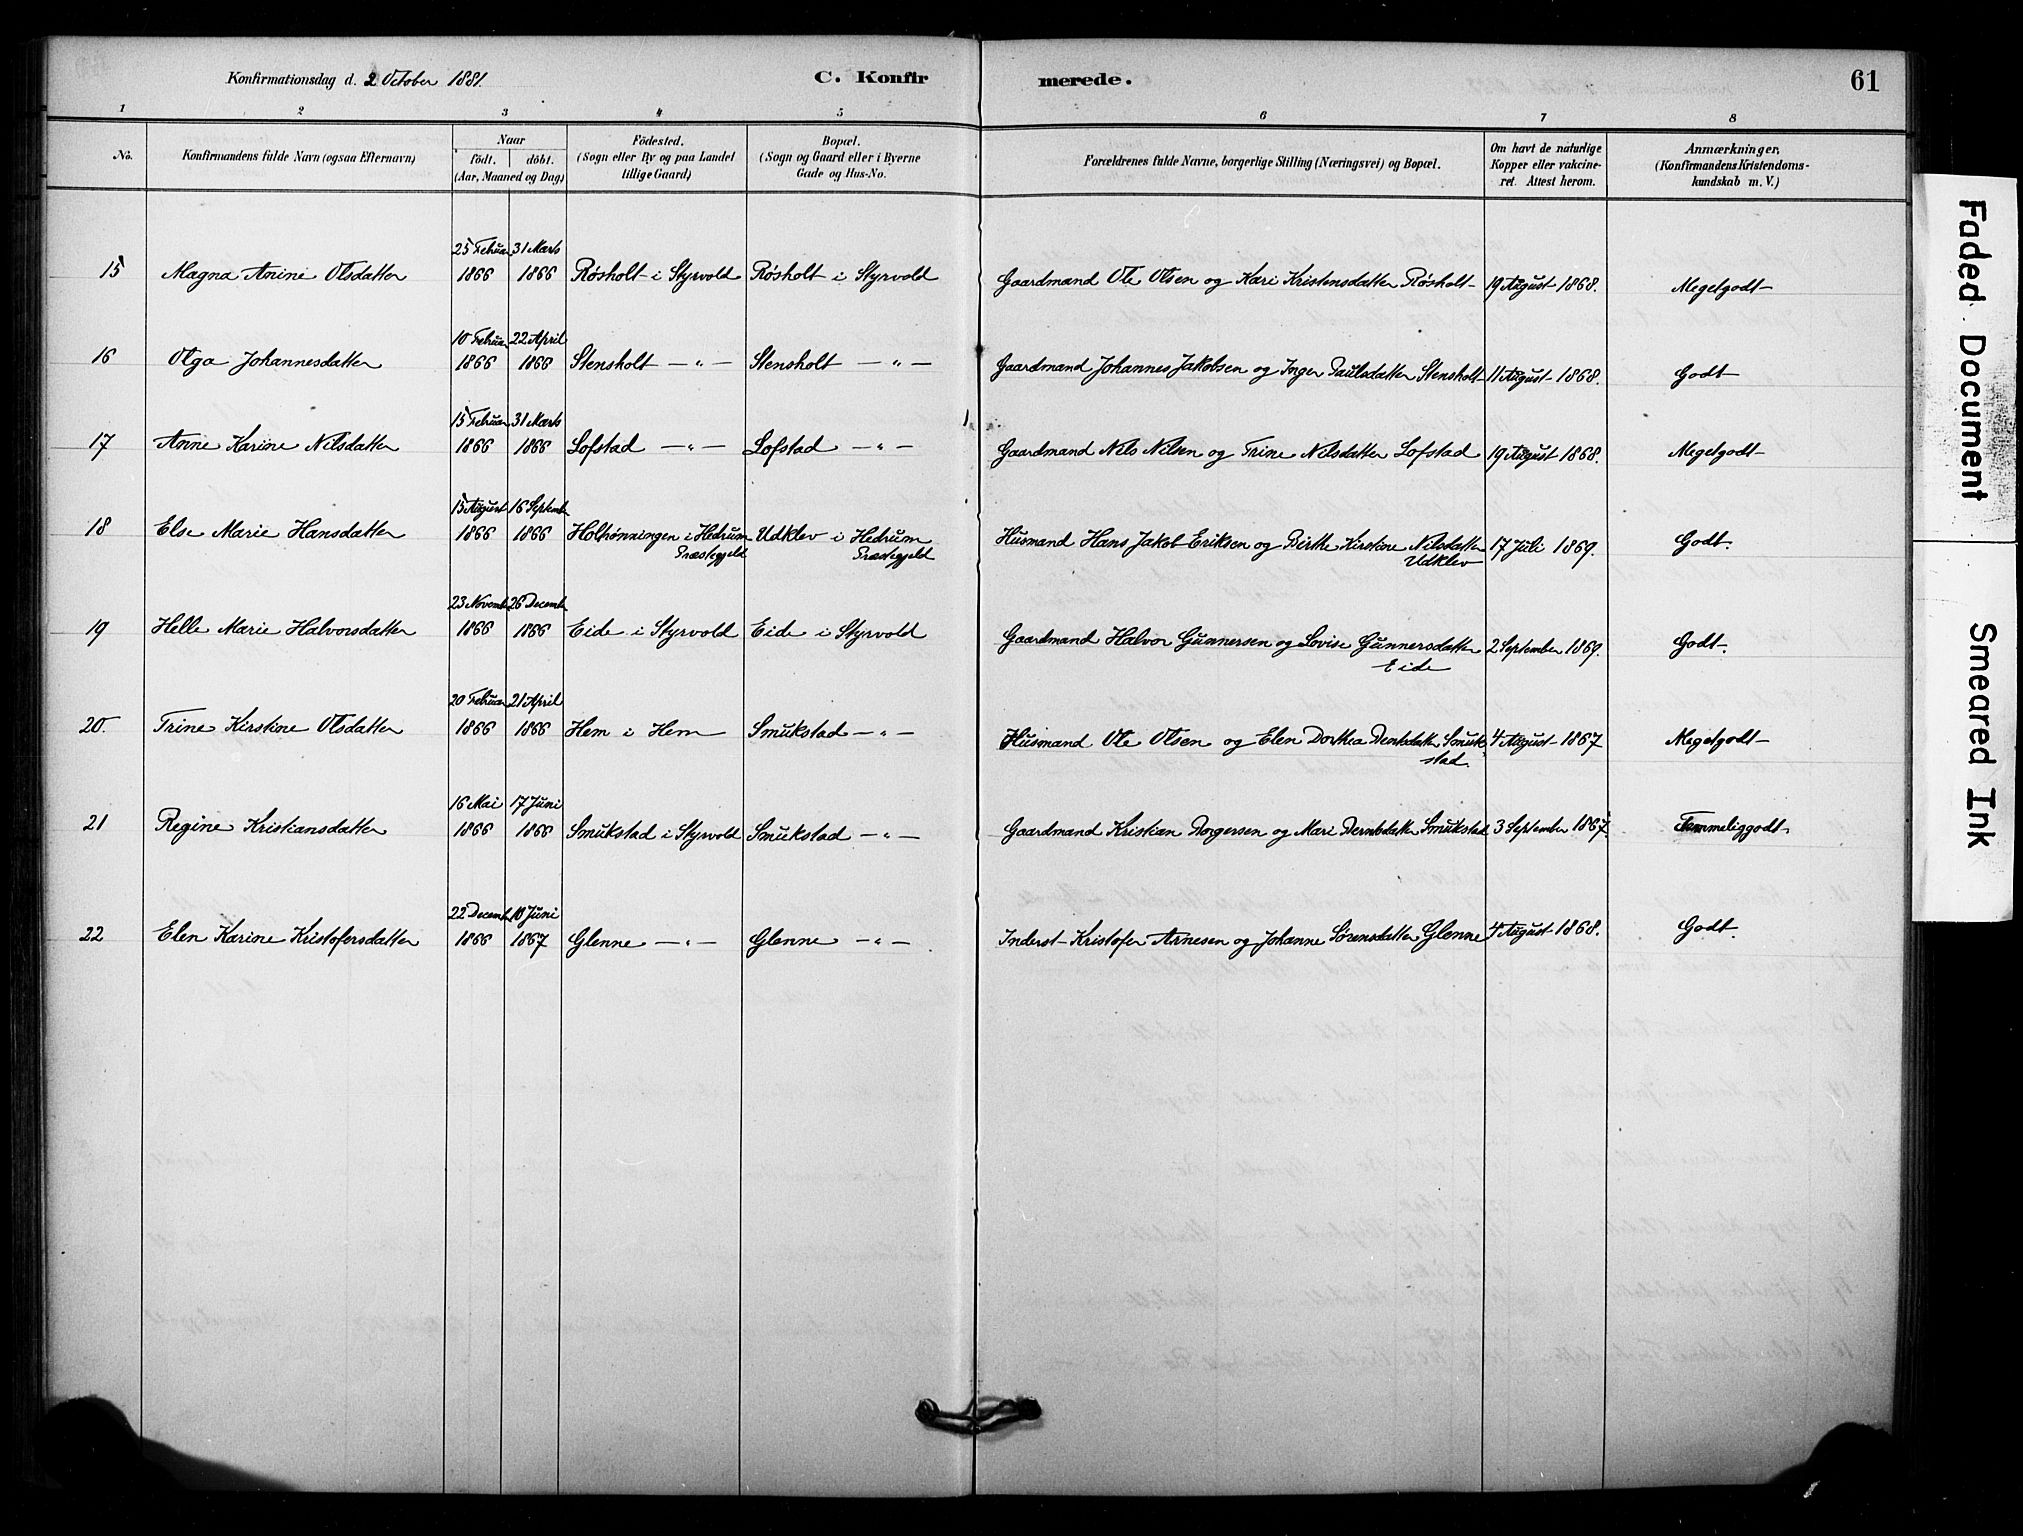 Konfirmationsdag d. 2 October 1881. C. Konfirmerede. 61
1 2 3 4 5 6 7 8
No. Konfirmandens fulde Navn (ogsaa Efternavn) Naar födt. döbt. (Aar, Maaned og Dag) Födested. (Sogn eller By og paa Landet tillige Gaard) Bopæl. (Sogn og Gaard eller i Byerne Gade og Hus-No. Forældrenes fulde Navne, borgerlige Stilling (Næringsvei) og Bopæl. Om havt de naturlige Kopper eller vakcineret. Attest herom. Anmærkninger, (Konfirmandens Kristendomskundskab m. V.)
25 Februar 31 Marts
15 Magna Anine Olsdatter 1866 1866 Røsholt i Styrvold Røsholt i Styrvold Gaardmand Ole Olsen og Kari Kristensdatter Røsholt 19 August 1868. Megetgodt
10 Februar 22 April
16 Olga Johannesdatter 1866 1866 Stensholt — " — Stensholt — " — Gaardmand Johannes Jakobsen og Inger Paulsdatter Stensholt 11 August 1868. Godt
15 Februar 31 Marts
17 Anne Karine Nilsdatter 1866 1866 Lofstad — " — Lofstad — " — Gaardmand Nils Nilsen og Trine Nilsdatter Lofstad 19 August 1868. Megetgodt
15 August 16 Septemb
18 Else Marie Hansdatter 1866 1866 Holhønningen i Hedrum Udklev i Hedrum Husmand Hans Jakob Eriksen og Birthe Kirstine Nilsdatter 17 Juli 1869. Godt.
Præstegjeld Præstegjeld Udklev
23 Novemb 26 Decemb
19 Helle Marie Halvorsdatter 1866 1866 Eide i Styrvold Eide i Styrvold Gaardmand Halvor Gunnersen og Lovise Gunnersdatter 2 September 1869. Godt.
Eide
20 Februar 21 April
20. Trine Kirstine Olsdatter 1866 1866 Hem i Hem Smukstad — " — Husmand Ole Olsen og Elen Dorthea Berntsdatter Smuk- 4 August 1867 Megetgodt
stad.
16 Mai 17 Juni
21 Regine Kristiansdatter 1866 1866 Smukstad i Styrvold Smukstad — " — Gaardmand Kristian Borgersen og Mari Berntsdatter Smukstad 3 September 1867. Temmeliggodt
22 Decemb 10 Juni
22 Elen Karine Kristofersdatter 1866 1867 Glenne — " — Glenne — " — Inderst Kristofer Arnesen og Johanne Sørensdatter Glenne 4 August 1868. Godt.
Faded Document
Smeared Ink